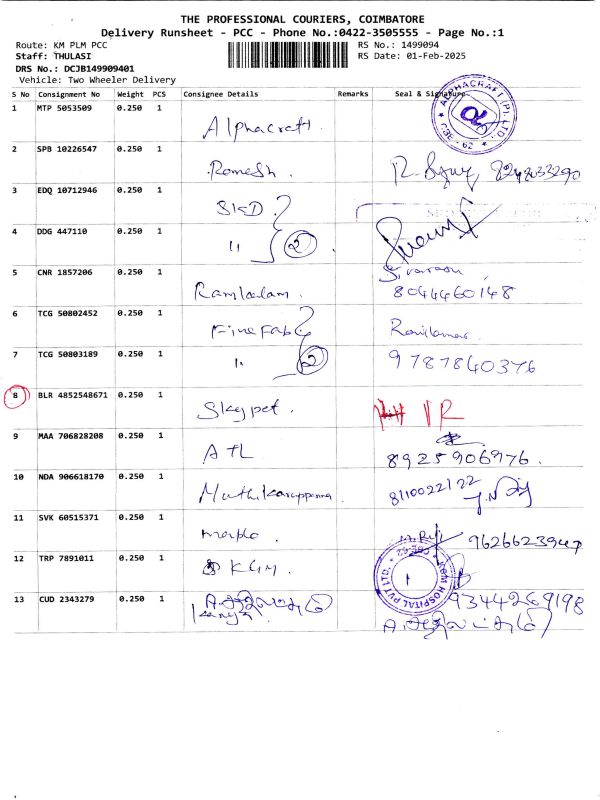 THE PROFESSIONAL COURIERS, COIMBATORE
Delivery Runsheet - PCC - Phone No.:0422-3505555 - Page No.:1
Route: KM PLM PCC RS No.: 1499094
Staff: THULASI RS Date: 01-Feb-2025
DRS No.: DCJB149909401
Vehicle: Two Wheeler Delivery
S No Consignment No Weight PCS Consignee Details Remarks Seal & Signature
1 MTP 5053509 0.250 1 Alphacraft. ALPHACRAFT (P) LTD. CBE - 62
2 SPB 10226547 0.250 1 Romesh. 8248033290
3 EDQ 10712946 0.250 1 SKD
4 DDG 447110 0.250 1 " 2
5 CNR 1857206 0.250 1 8044460148
6 TCG 50802452 0.250 1 Fine Fab
7 TCG 50803189 0.250 1 " 2 9787840376
8 BLR 4852548671 0.250 1 Skypet. VR
9 MAA 706828208 0.250 1 ATL 8925906976.
10 NDA 906618170 0.250 1 8110022122
11 SVK 60515371 0.250 1 9626623947
12 TRP 7891011 0.250 1 KGM. KGM HOSPITAL PVT LTD. CBE-62
13 CUD 2343279 0.250 1 9344269198